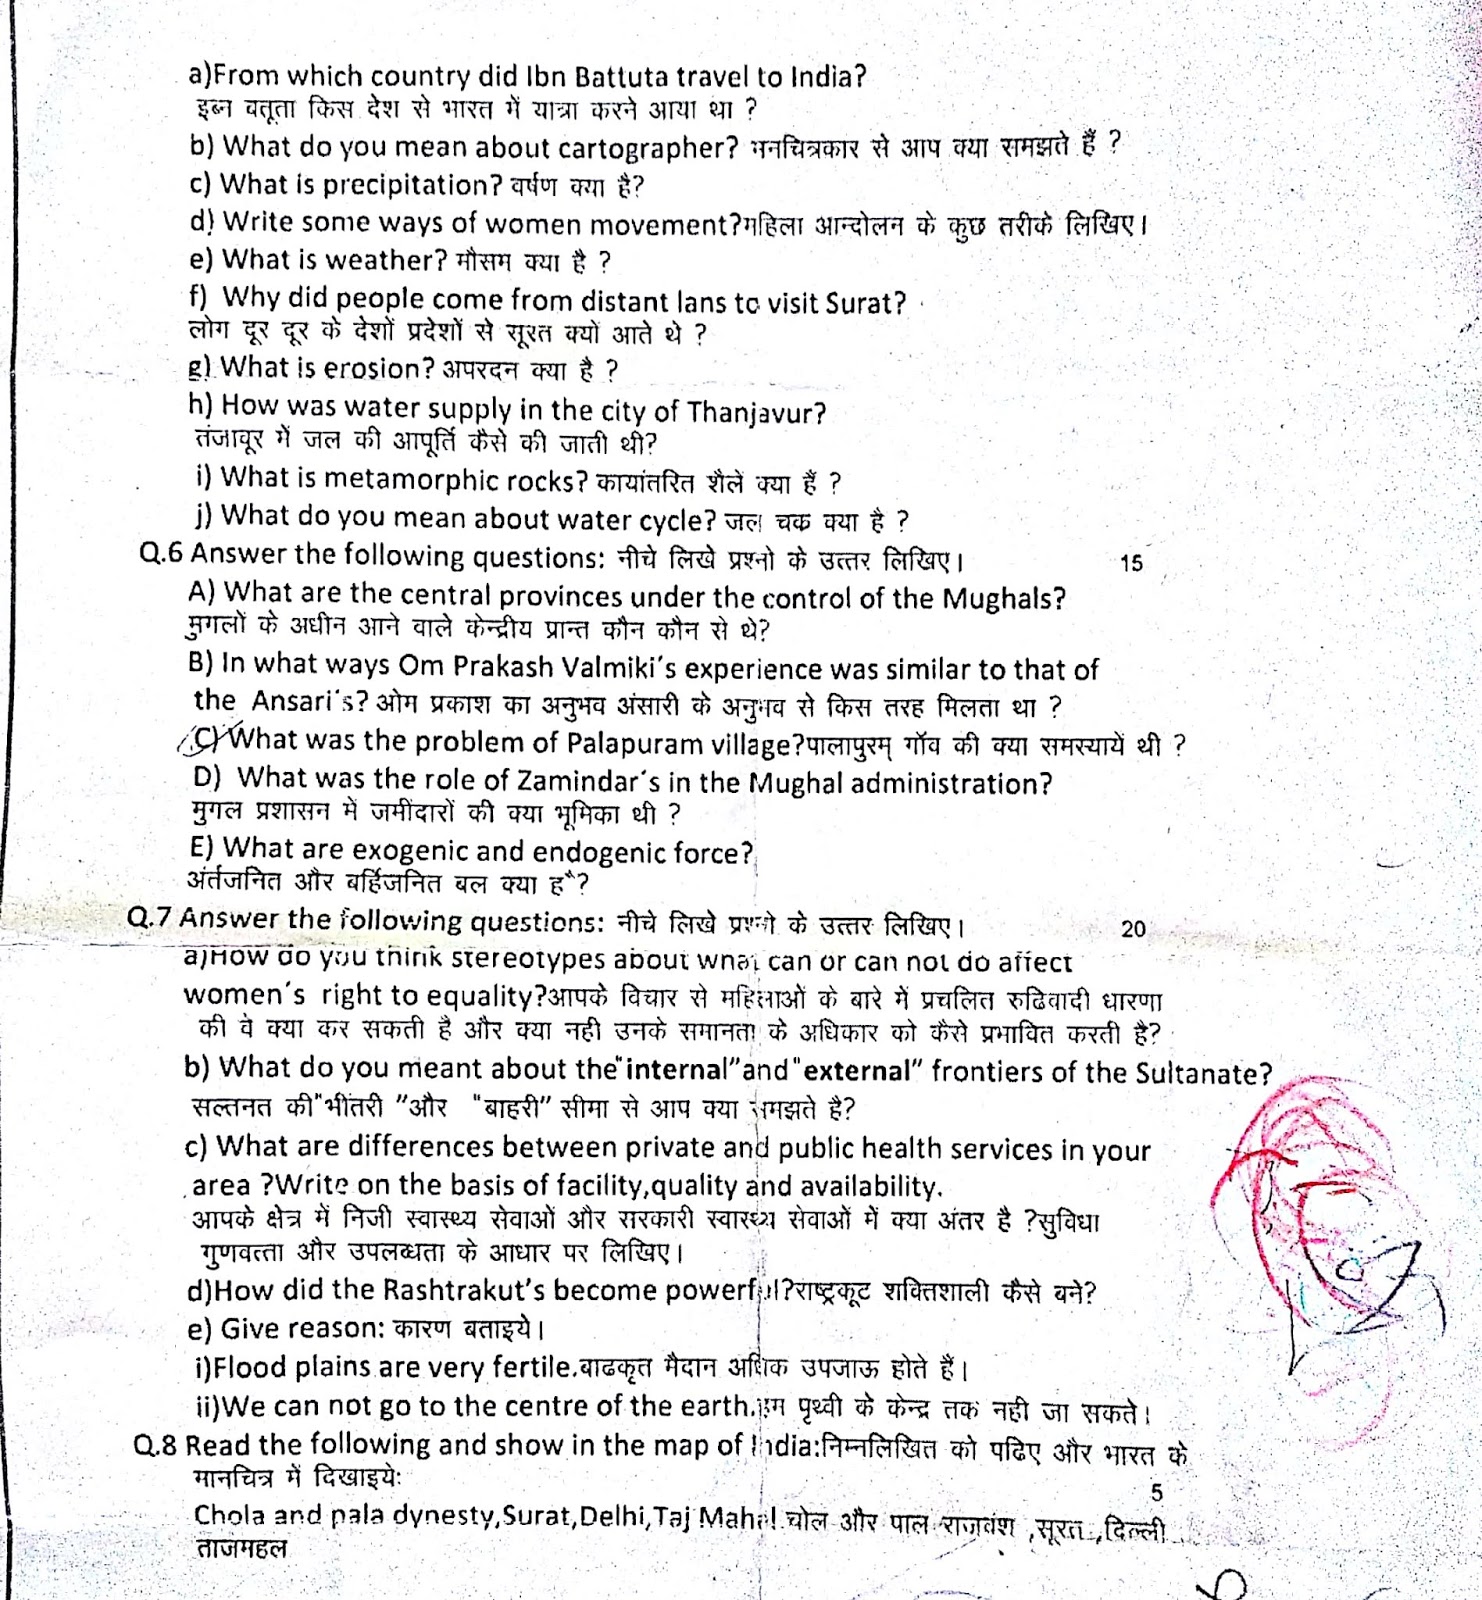 a)From which country did Ibn Battuta travel to India?
इब्न बतूता किस देश से भारत में यात्रा करने आया था ?
b) What do you mean about cartographer? मनचित्रकार से आप क्या समझते हैं ?
c) What is precipitation? वर्षण क्या है?
d) Write some ways of women movement?महिला आन्दोलन के कुछ तरीके लिखिए।
e) What is weather? मौसम क्या है ?
f) Why did people come from distant lans to visit Surat?
लोग दूर दूर के देशों प्रदेशों से सूरत क्यों आते थे ?
g) What is erosion? अपरदन क्या है ?
h) How was water supply in the city of Thanjavur?
तंजावूर में जल की आपूर्ति कैसे की जाती थी?
i) What is metamorphic rocks? कायांतरित शैलें क्या हैं ?
j) What do you mean about water cycle? जल चक क्या है ?
Q.6 Answer the following questions: नीचे लिखे प्रश्नो के उत्तर लिखिए। 15
A) What are the central provinces under the control of the Mughals?
मुगलों के अधीन आने वाले केन्द्रीय प्रान्त कौन कौन से थे?
B) In what ways Om Prakash Valmiki's experience was similar to that of
the Ansari's? ओम प्रकाश का अनुभव अंसारी के अनुभव से किस तरह मिलता था ?
C) What was the problem of Palapuram village?पालापुरम् गॉव की क्या समस्यायें थी ?
D) What was the role of Zamindar's in the Mughal administration?
मुगल प्रशासन में जमींदारों की क्या भूमिका थी ?
E) What are exogenic and endogenic force?
अंर्तजनित और बर्हिजनित बल क्या हैं?
Q.7 Answer the following questions: नीचे लिखे प्रश्नो के उत्तर लिखिए। 20
a)How do you think stereotypes about what can or can not do affect
women's right to equality?आपके विचार से महिलाओं के बारे में प्रचलित रुढिवादी धारणा
की वे क्या कर सकती है और क्या नही उनके समानता के अधिकार को कैसे प्रभावित करती है?
b) What do you meant about the"internal"and"external" frontiers of the Sultanate?
सल्तनत की"भीतरी "और "बाहरी" सीमा से आप क्या समझते है?
c) What are differences between private and public health services in your
area ?Write on the basis of facility,quality and availability.
आपके क्षेत्र में निजी स्वास्थ्य सेवाओं और सरकारी स्वास्थ्य सेवाओं में क्या अंतर है ?सुविधा
गुणवत्ता और उपलब्धता के आधार पर लिखिए।
d)How did the Rashtrakut's become powerful?राष्ट्रकूट शक्तिशाली कैसे बने?
e) Give reason: कारण बताइये।
i)Flood plains are very fertile.बाढकृत मैदान अधिक उपजाऊ होते हैं।
ii)We can not go to the centre of the earth.हम पृथ्वी के केन्द्र तक नही जा सकते।
Q.8 Read the following and show in the map of India:निम्नलिखित को पढिए और भारत के
मानचित्र में दिखाइये:
5
Chola and pala dynesty,Surat,Delhi,Taj Mahal.चोल और पाल राजवंश ,सूरत ,दिल्ली
ताजमहल